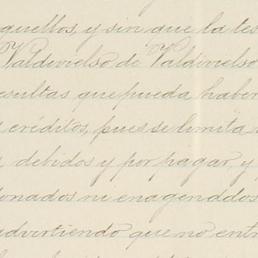 aquellos, y sin que la tes
Valdivielso de Valdivielso
resultas que pueda haber
créditos, pues se limita
debidos y por pagar, y
ni enagenados
advirtiendo que no entr